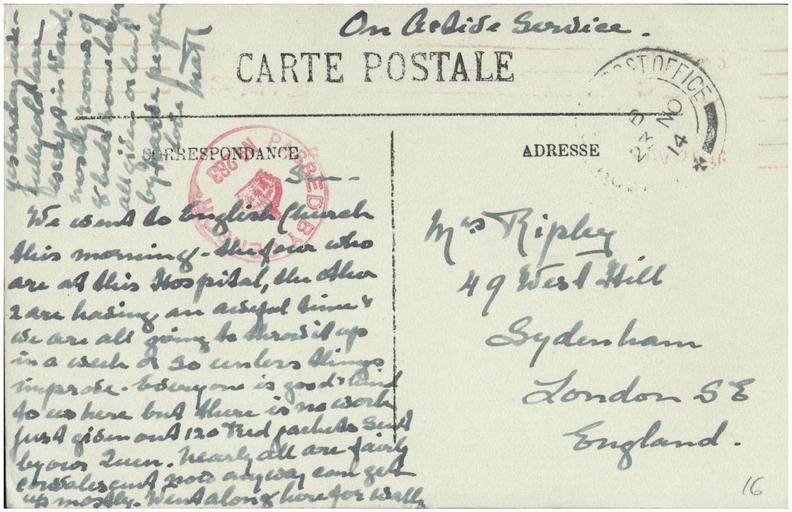 On Active Service.
CARTE POSTALE
POST OFFICE
B
23 NO
14
CORRESPONDANCE
ADRESSE
PASSED BY CENSOR
No 283
Sun—
We went to English Church
this morning - the four who
are at this Hospital, the other
2 are having an awful time &
we are all going to throw it up
in a week or so unless things
improve. Everyone is good & kind
to us here but there is no work
Just given out 120 Bed jackets sent
by our Queen. Nearly all are fairly
convalescent now anyway can get
up mostly. Went along here for walk
yesterday
fully
except in ward
mostly rooms of
2 beds
all given or lent
by people
Mrs Ripley
49 West Hill
Sydenham
London SE
England.
16